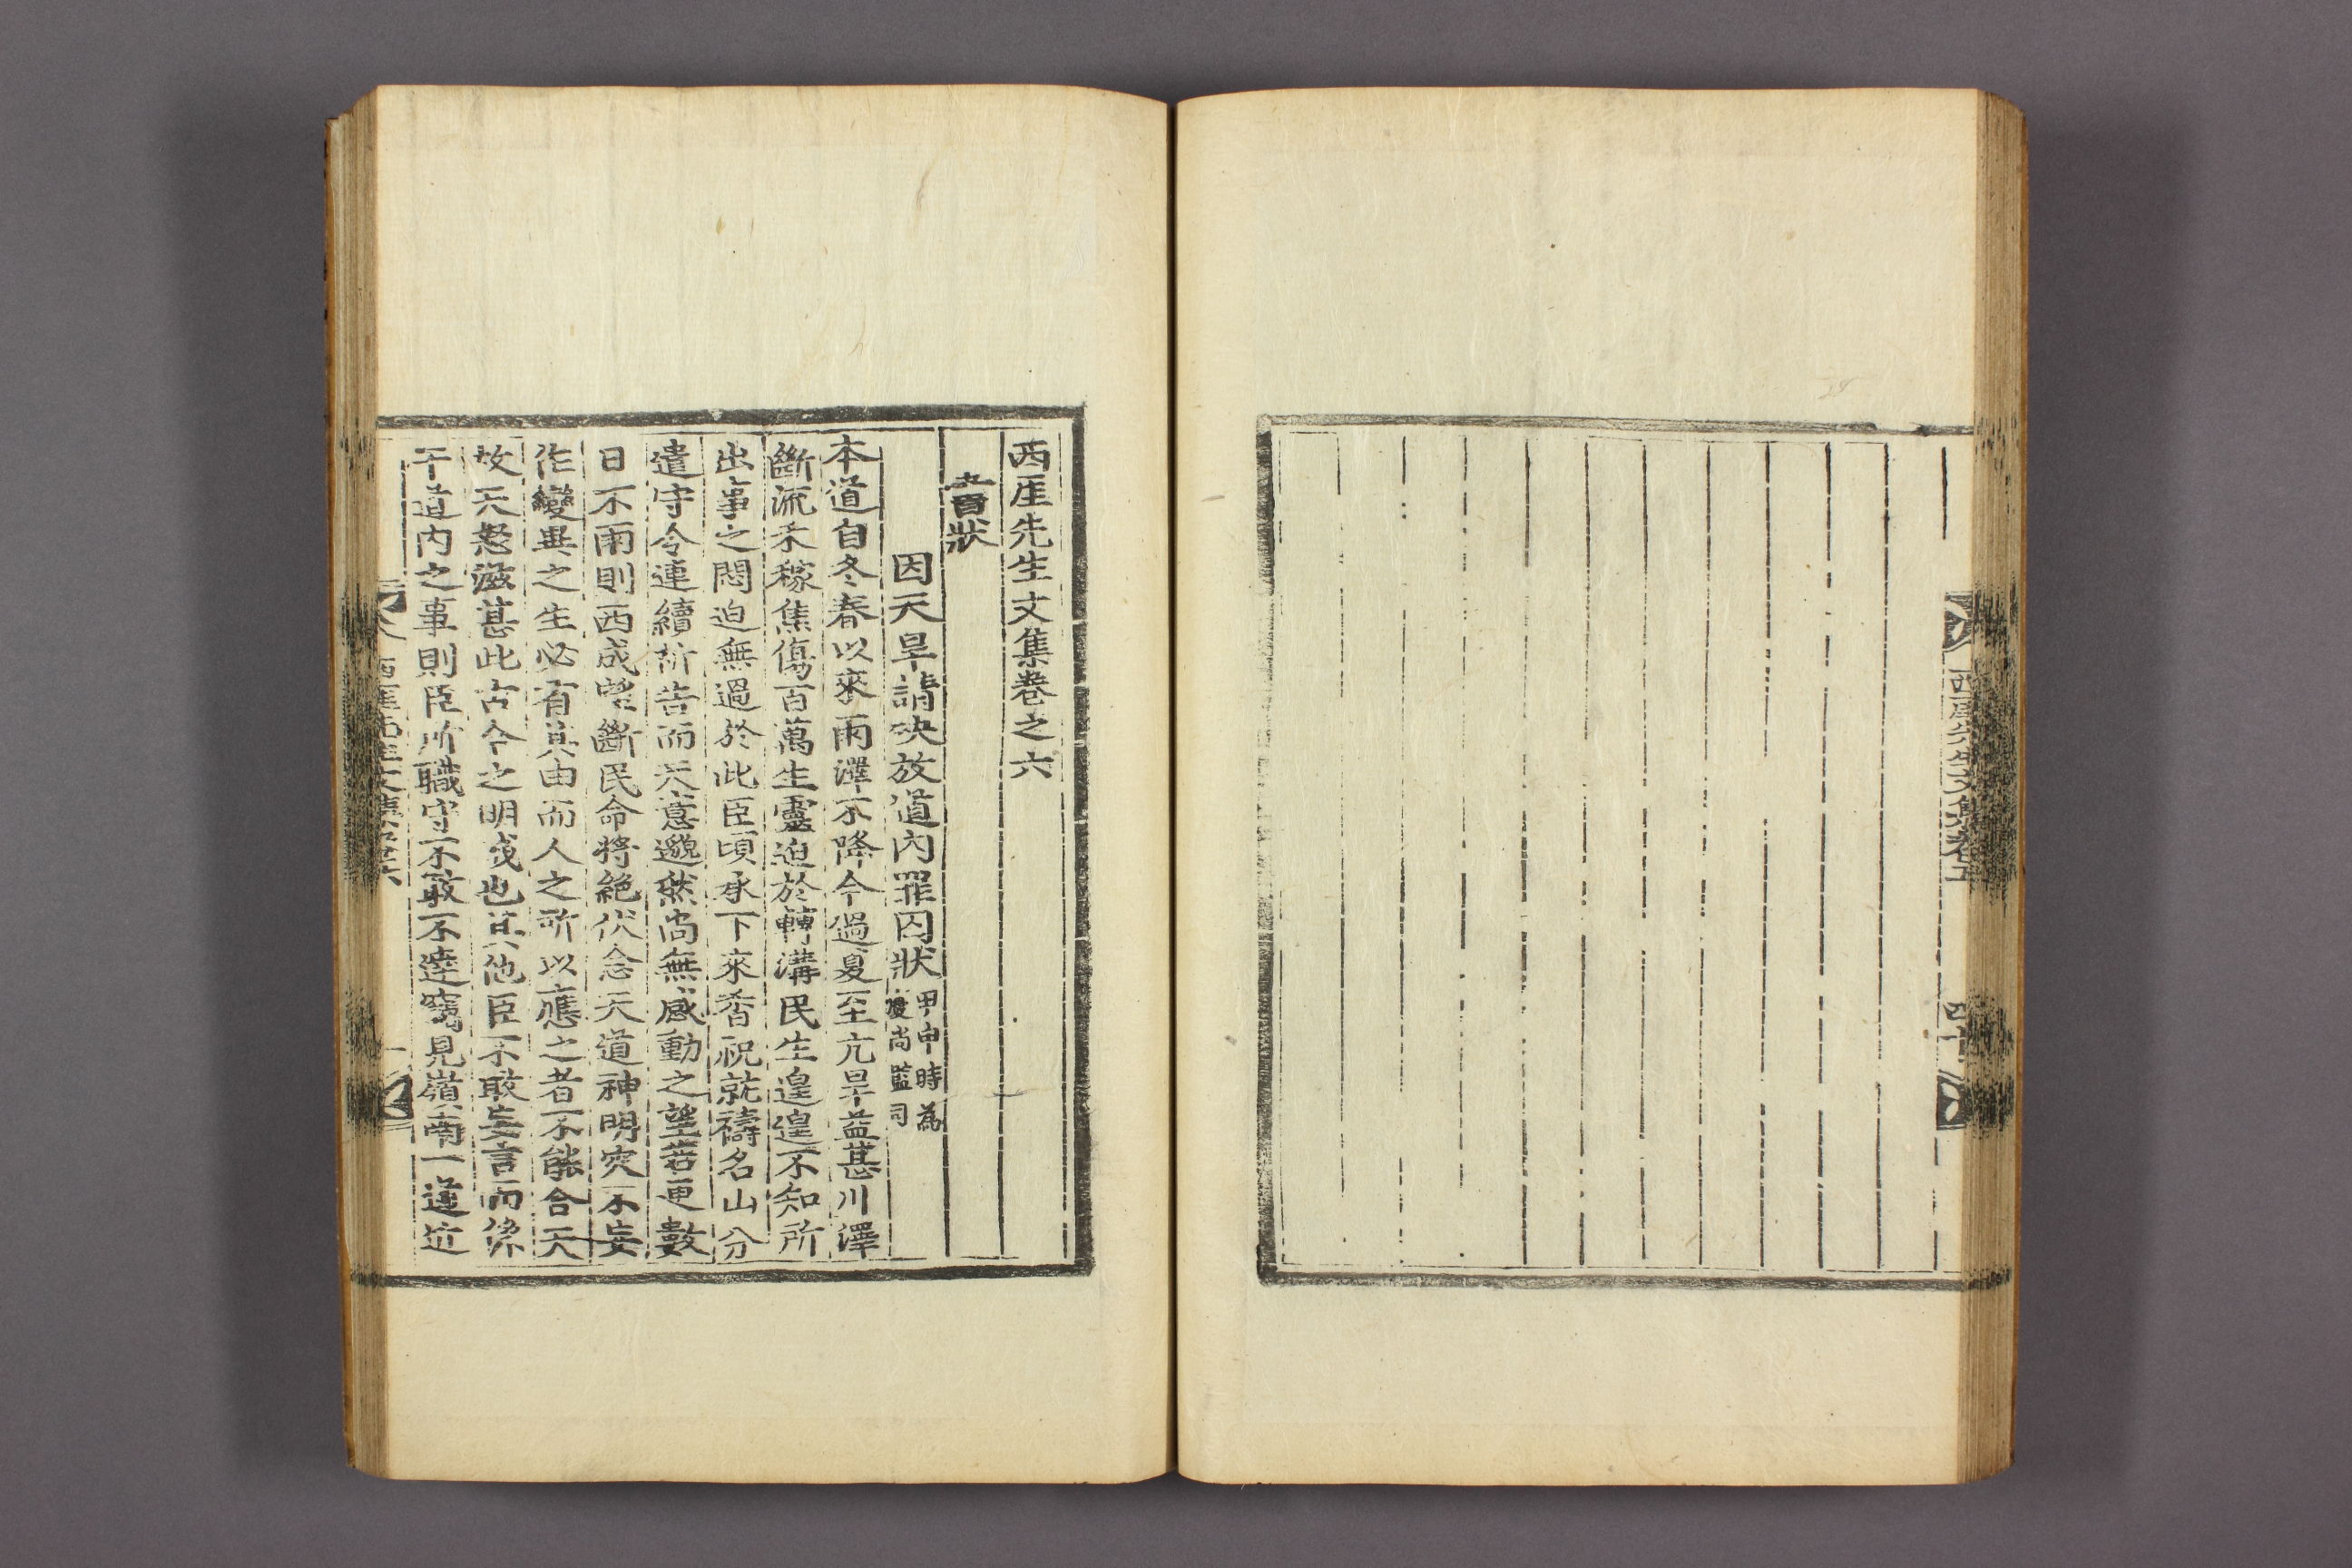 西厓先生文集卷五
四十八
西厓先生文集卷之六
書狀
因天旱請決放道內罪囚狀
甲申時爲
慶尚監司
本道自冬春以來雨澤不降今過夏至亢旱益甚川澤
斷流禾稼焦傷百萬生靈迫於轉溝民生遑遑不知所
出事之悶迫無過於此臣頃承下來香祝就禱名山分
遣守令連續祈告而天意邈然尚無感動之望若更數
日不雨則西成望斷民命將絶伏念天道神明灾不妄
作變異之生必有其由而人之所以應之者不能合天
故天怒滋甚此古今之明戒也其他臣不敢妄言而係
干道內之事則臣所職守不敢不達竊見嶺南一道近
西厓先生文集卷六
一